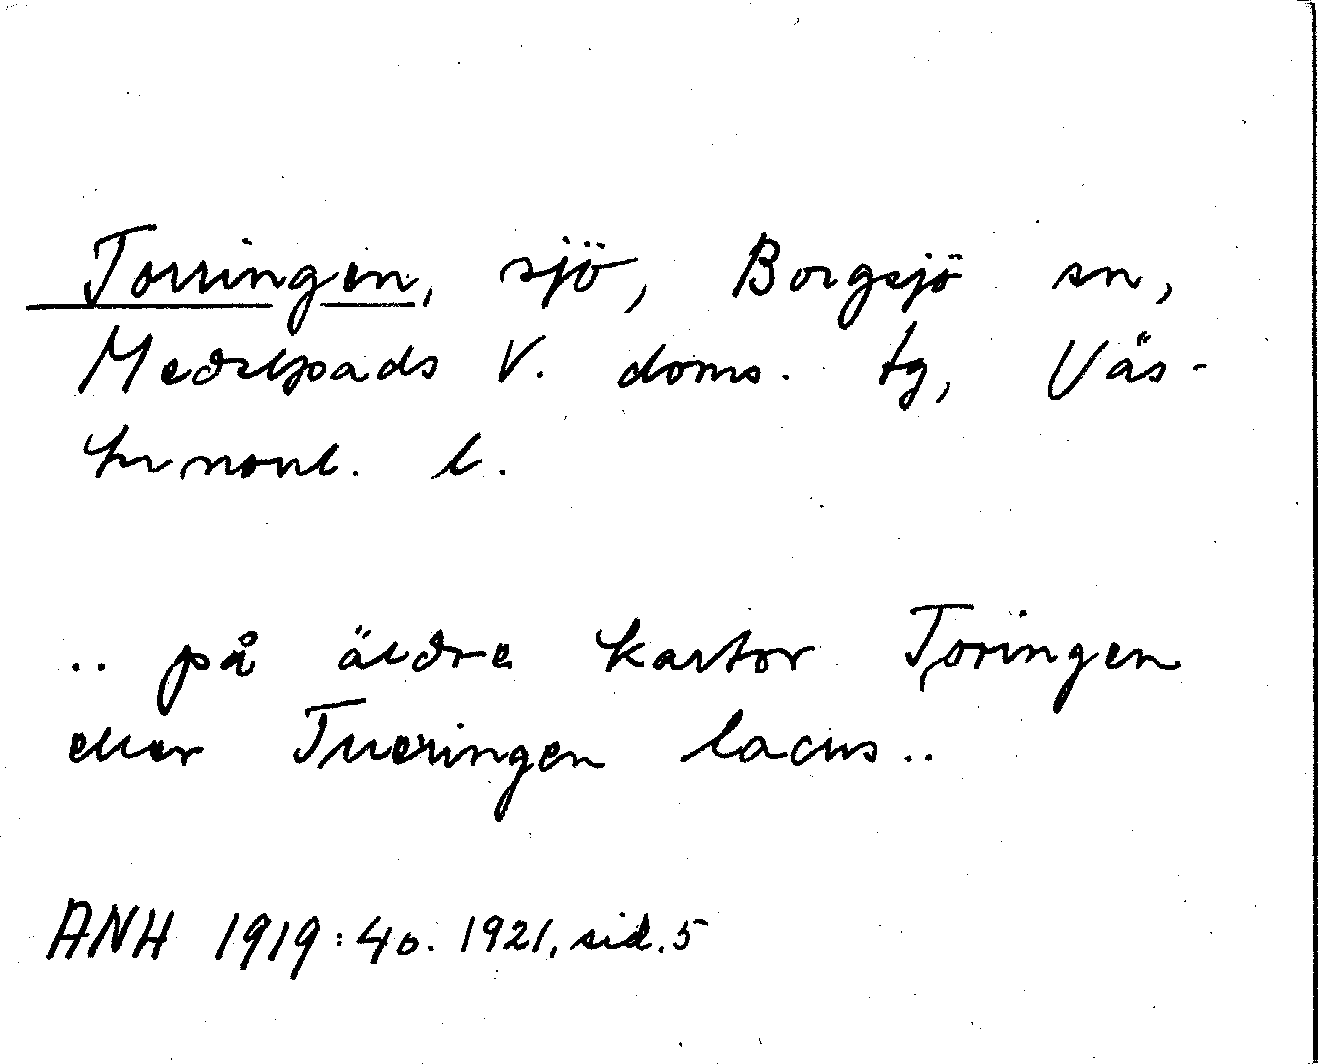 Torringen, sjö, Borgsjö sn,
Medelpads V. doms. tg, Väs-
ternorrl. l.
.. på äldre kartor Toringen
eller Tueringen lacus..
ANH 1919:40. 1921, sid. 5